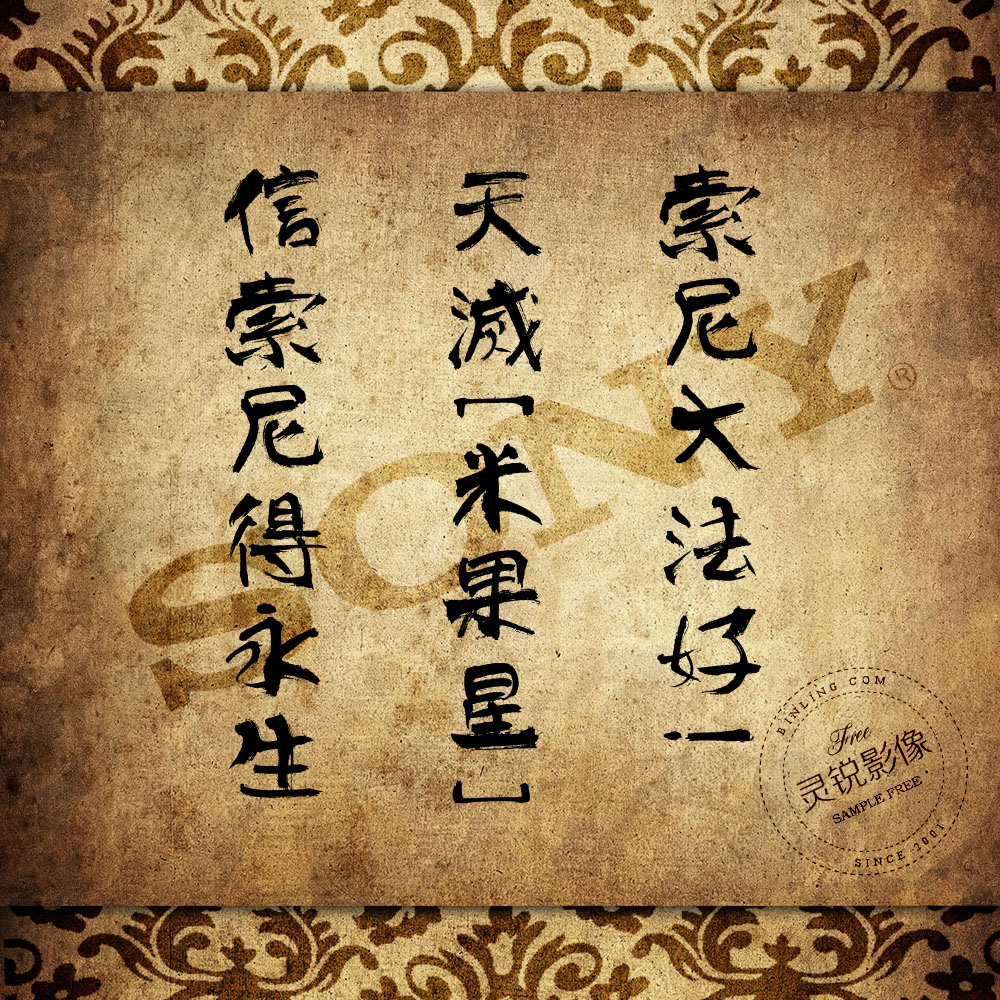 索尼大法好!
天滅[米果星]
信索尼得永生
SONY®
BINLING COM
Free
灵锐影像
SAMPLE FREE
SINCE 2001